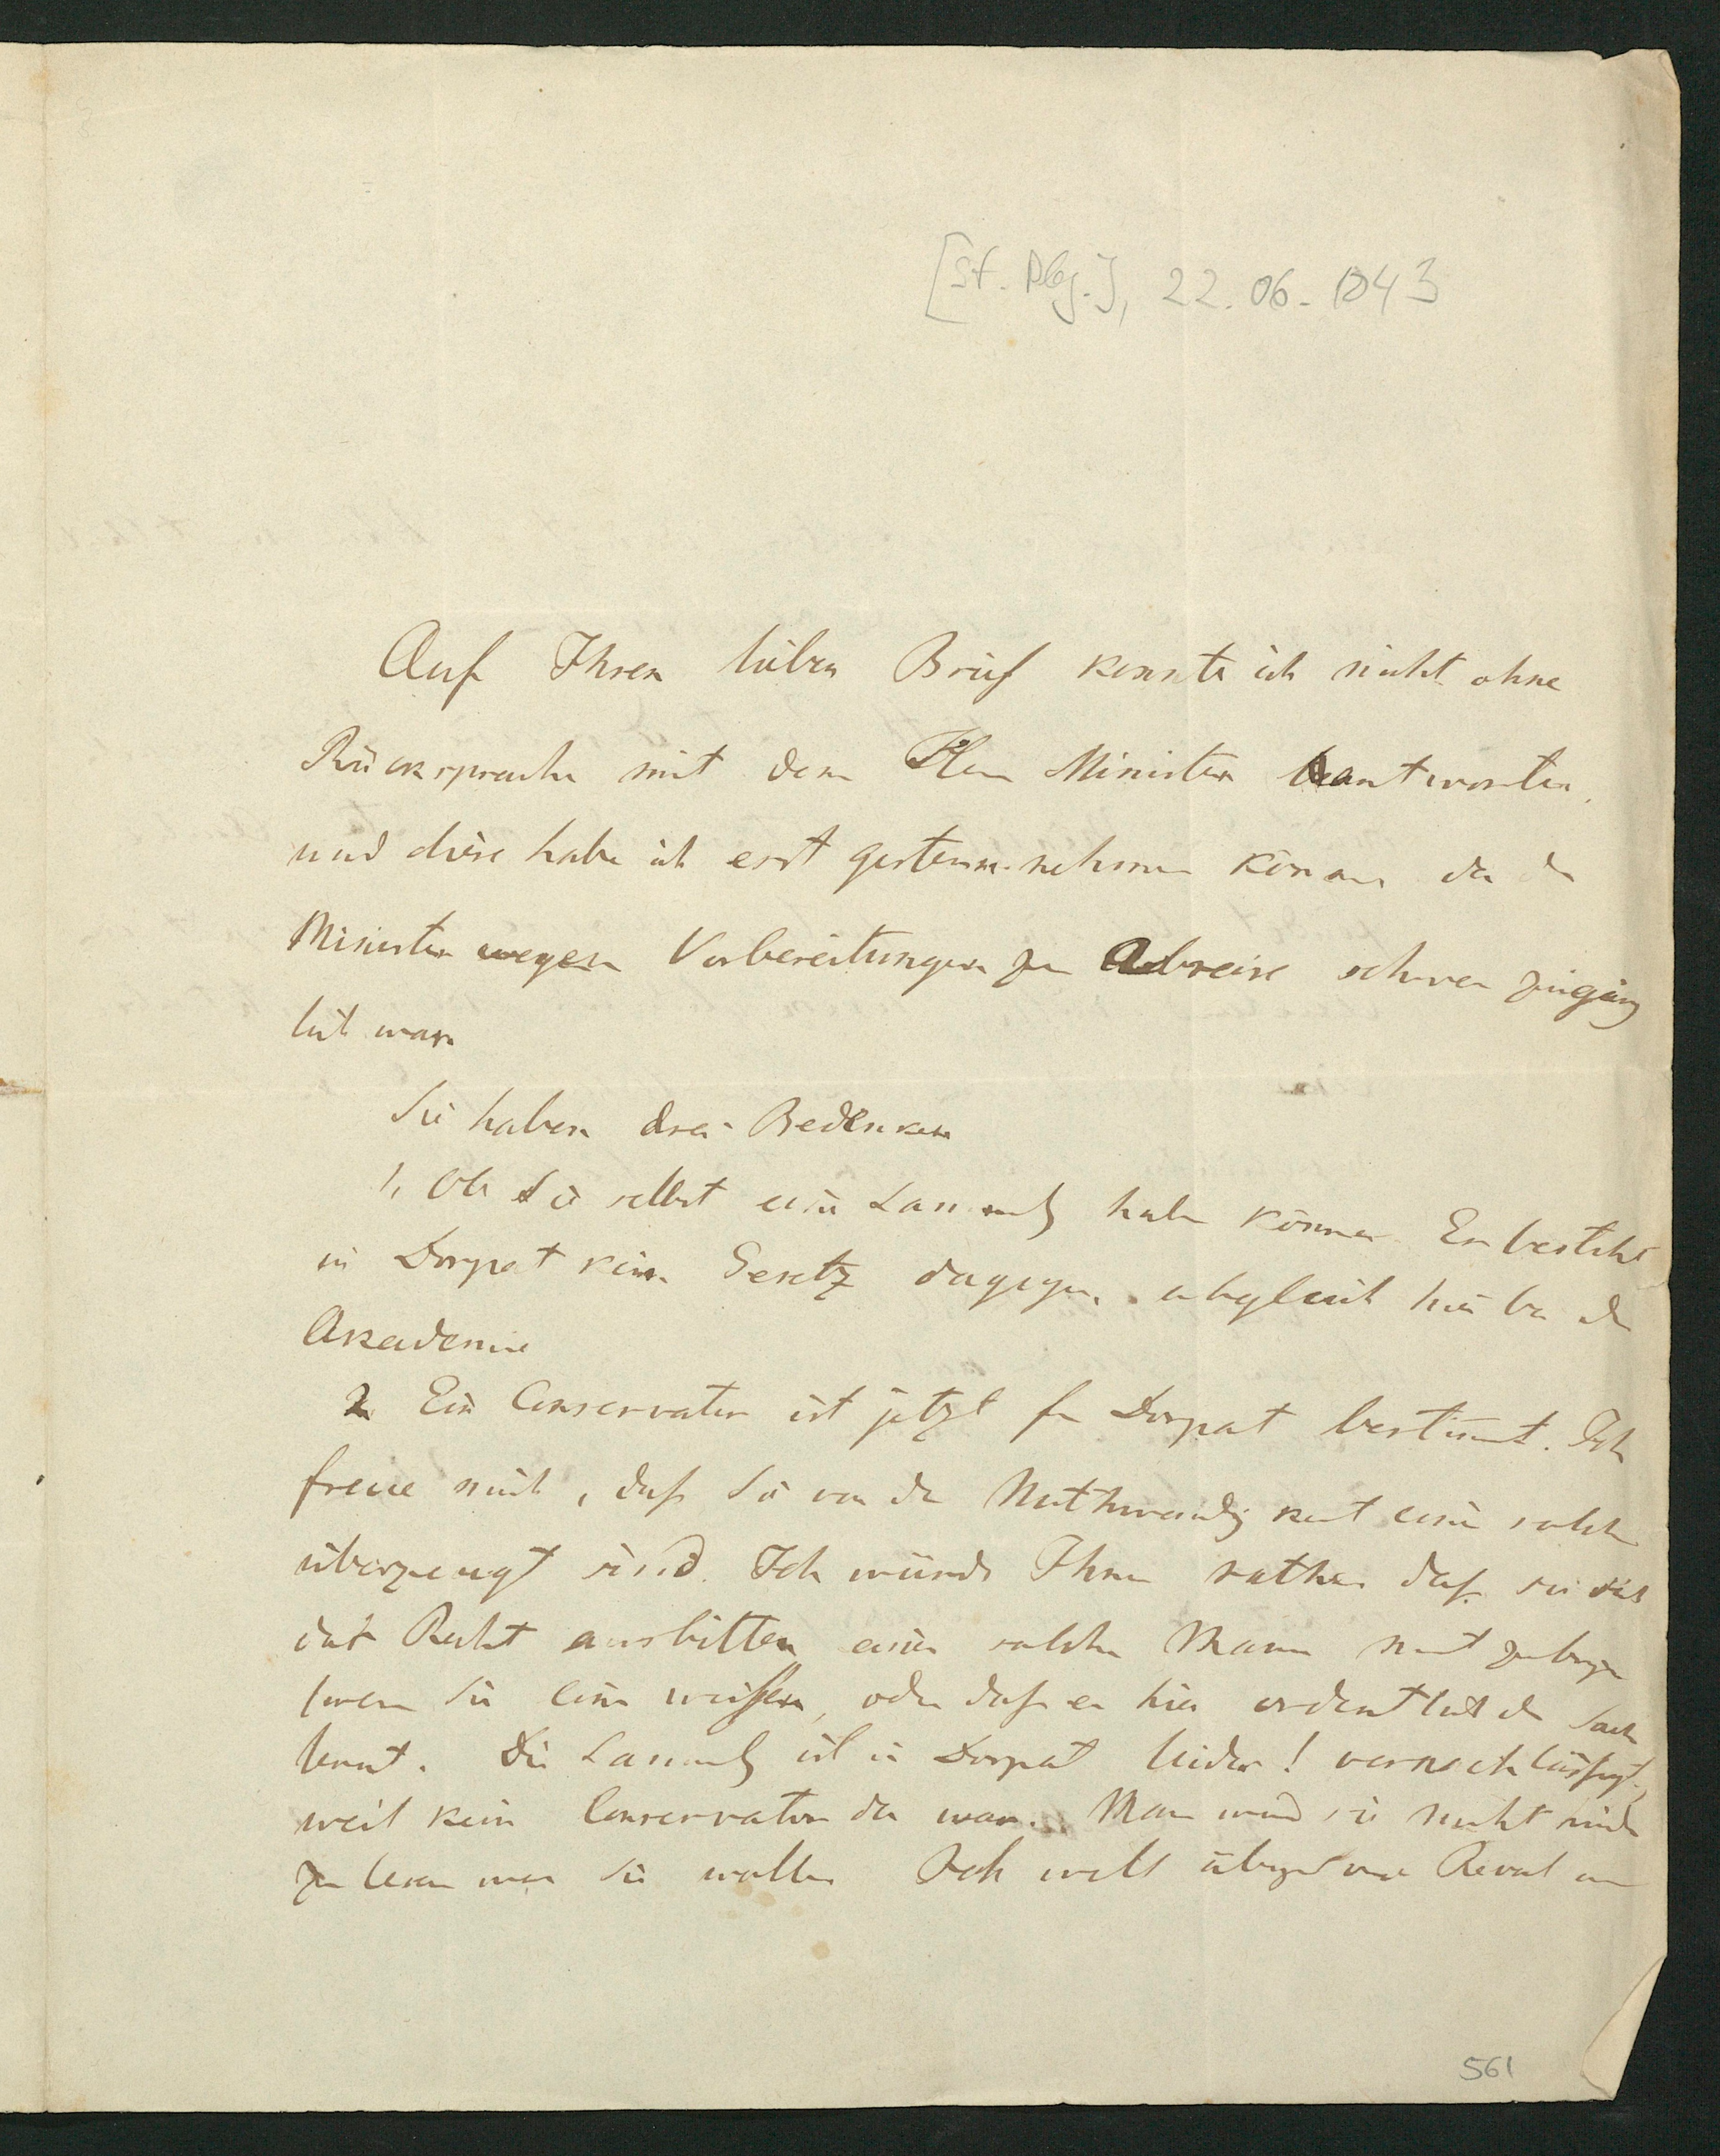 [St. Pbg.], 22.06.1843
Auf Ihren lieben Brief konnte ich nicht ohne
Rücksprache mit dem Hern Minister antworten,
und diese habe ich erst gestern nehmen können da der
Minister wegen Vorbereitungen zur Abreise schwer zugäng
lich war
Sie haben drei Bedenken
1, Ob Sie selbst eine Samml haben können Es besteht
in Dorpat kein Gesetz dagegen, obgleich hier bei der
Akademie
2 Ein Conservator ist jetzt für Dorpat bestimt. Ich
freue mich, daß Sie von der Nothwendigkeit eines solchen
überzeugt sind. Ich würde Ihnen rathen daß sie sich
das Recht ausbitten einen solchen Mann mit zu bringen
wenn Sie einen wissen, oder daß er hier ordentlich die Sache
lernt. Die Samml ist in Dorpat leider! vernachlässigt,
weil kein Conservator da war. Man wird sie nicht
zu lesen was Sie wollen Ich will über Reval
561